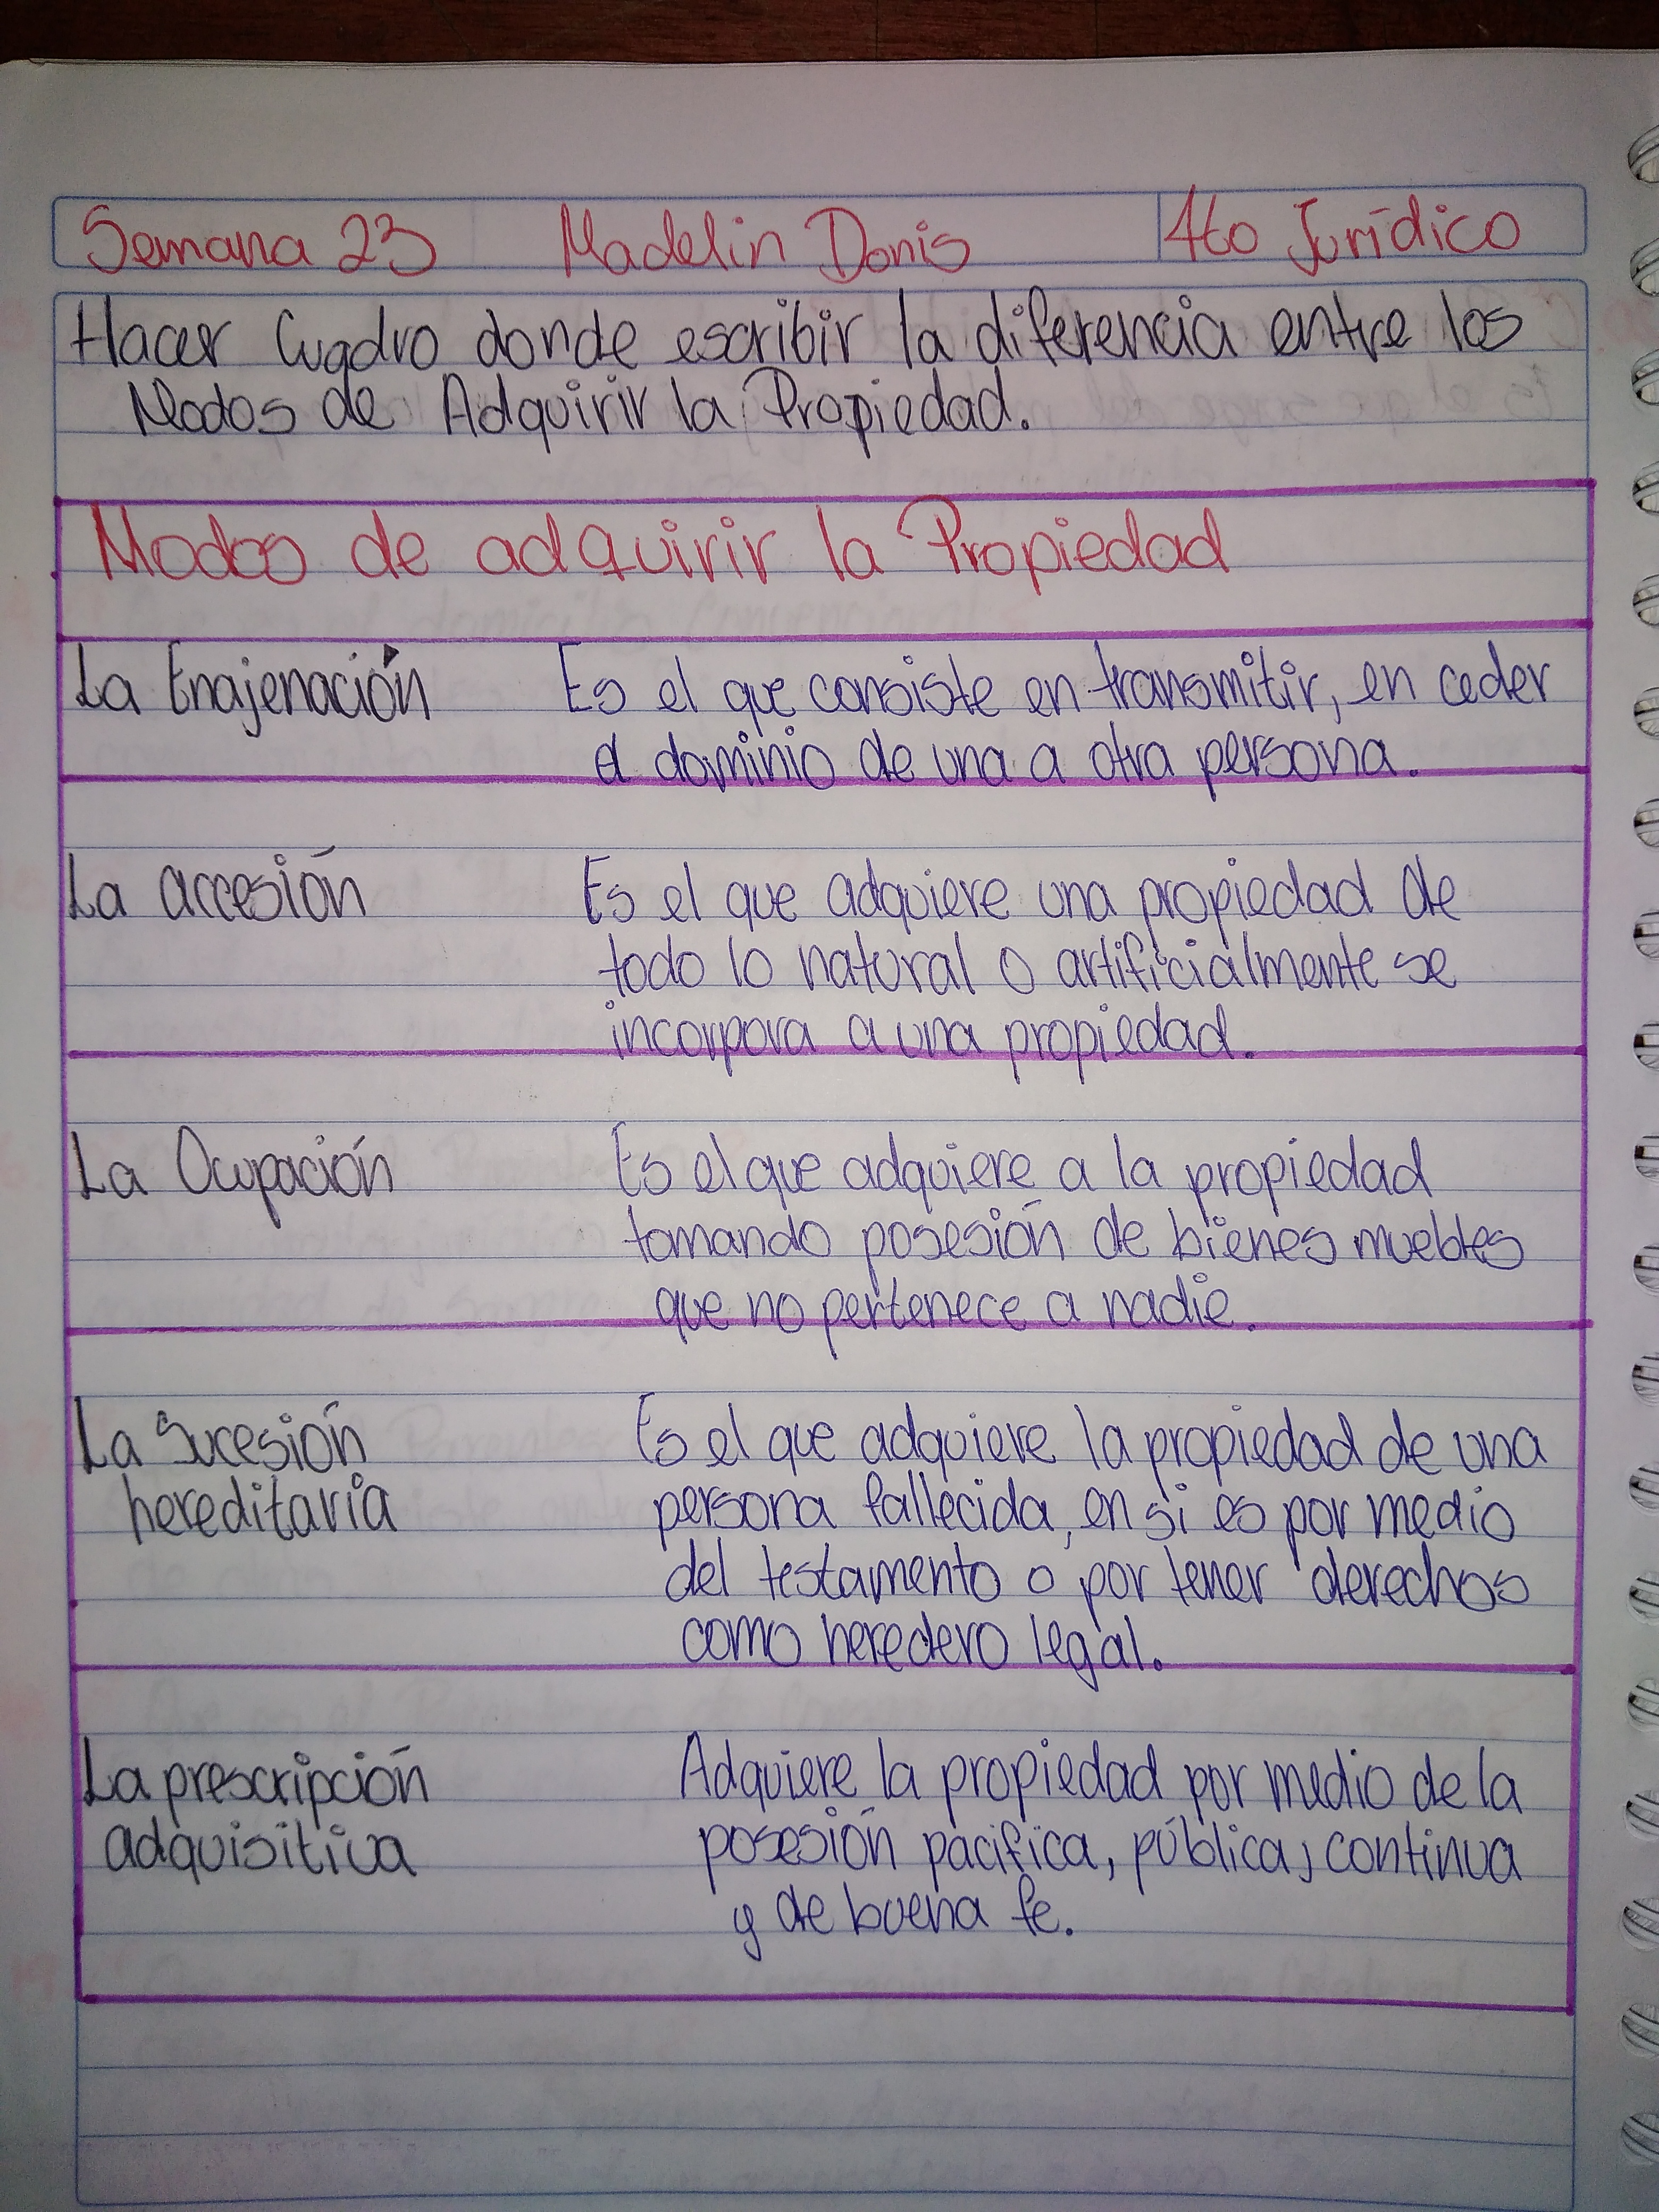 Semana 23 Madelin Donis 4to Jurídico
Hacer Cuadro donde escribir la diferencia entre los
Modos de Adquirir la Propiedad.
Modos de adquirir la Propiedad
La Enajenación Es el que consiste en transmitir, en ceder
el dominio de una a otra persona.
La accesión Es el que adquiere una propiedad de
todo lo natural o artificialmente se
incorpora a una propiedad.
La Ocupación Es el que adquiere a la propiedad
tomando posesión de bienes muebles
que no pertenece a nadie.
La Sucesión Es el que adquiere la propiedad de una
hereditaria persona fallecida, en si es por medio
del testamento o por tener derechos
como heredero legal.
La prescripción Adquiere la propiedad por medio de la
adquisitiva posesión pacifica, pública, continua
y de buena fe.